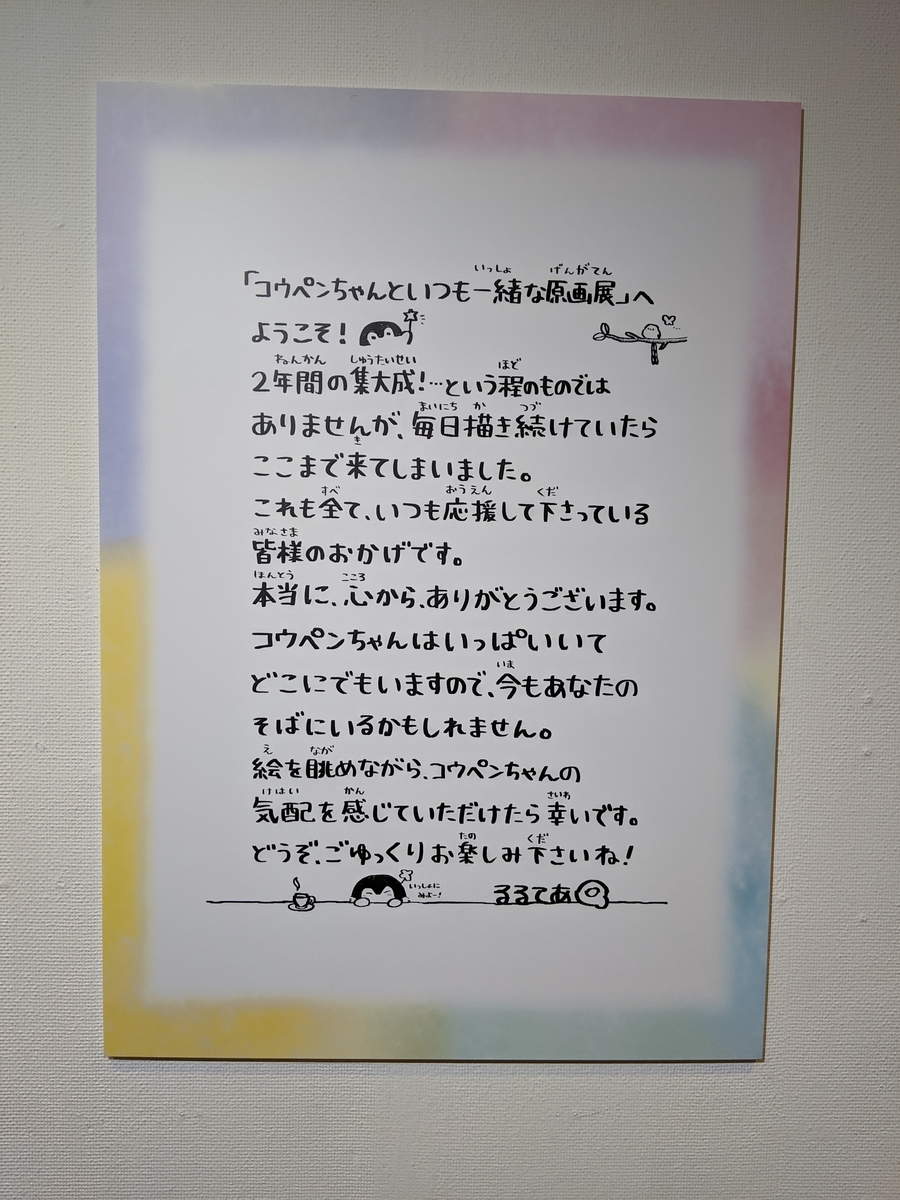 「コウペンちゃんといつも一緒な原画展」へ
ようこそ!
2年間の集大成!…という程のものでは
ありませんが、毎日描き続けていたら
ここまで来てしまいました。
これも全て、いつも応援して下さっている
皆様のおかげです。
本当に、心から、ありがとうございます。
コウペンちゃんはいっぱいいて
どこにでもいますので、今もあなたの
そばにいるかもしれません。
絵を眺めながら、コウペンちゃんの
気配を感じていただけたら幸いです。
どうぞ、ごゆっくりお楽しみ下さいね!
いっしょに
みよー!
るるてあ